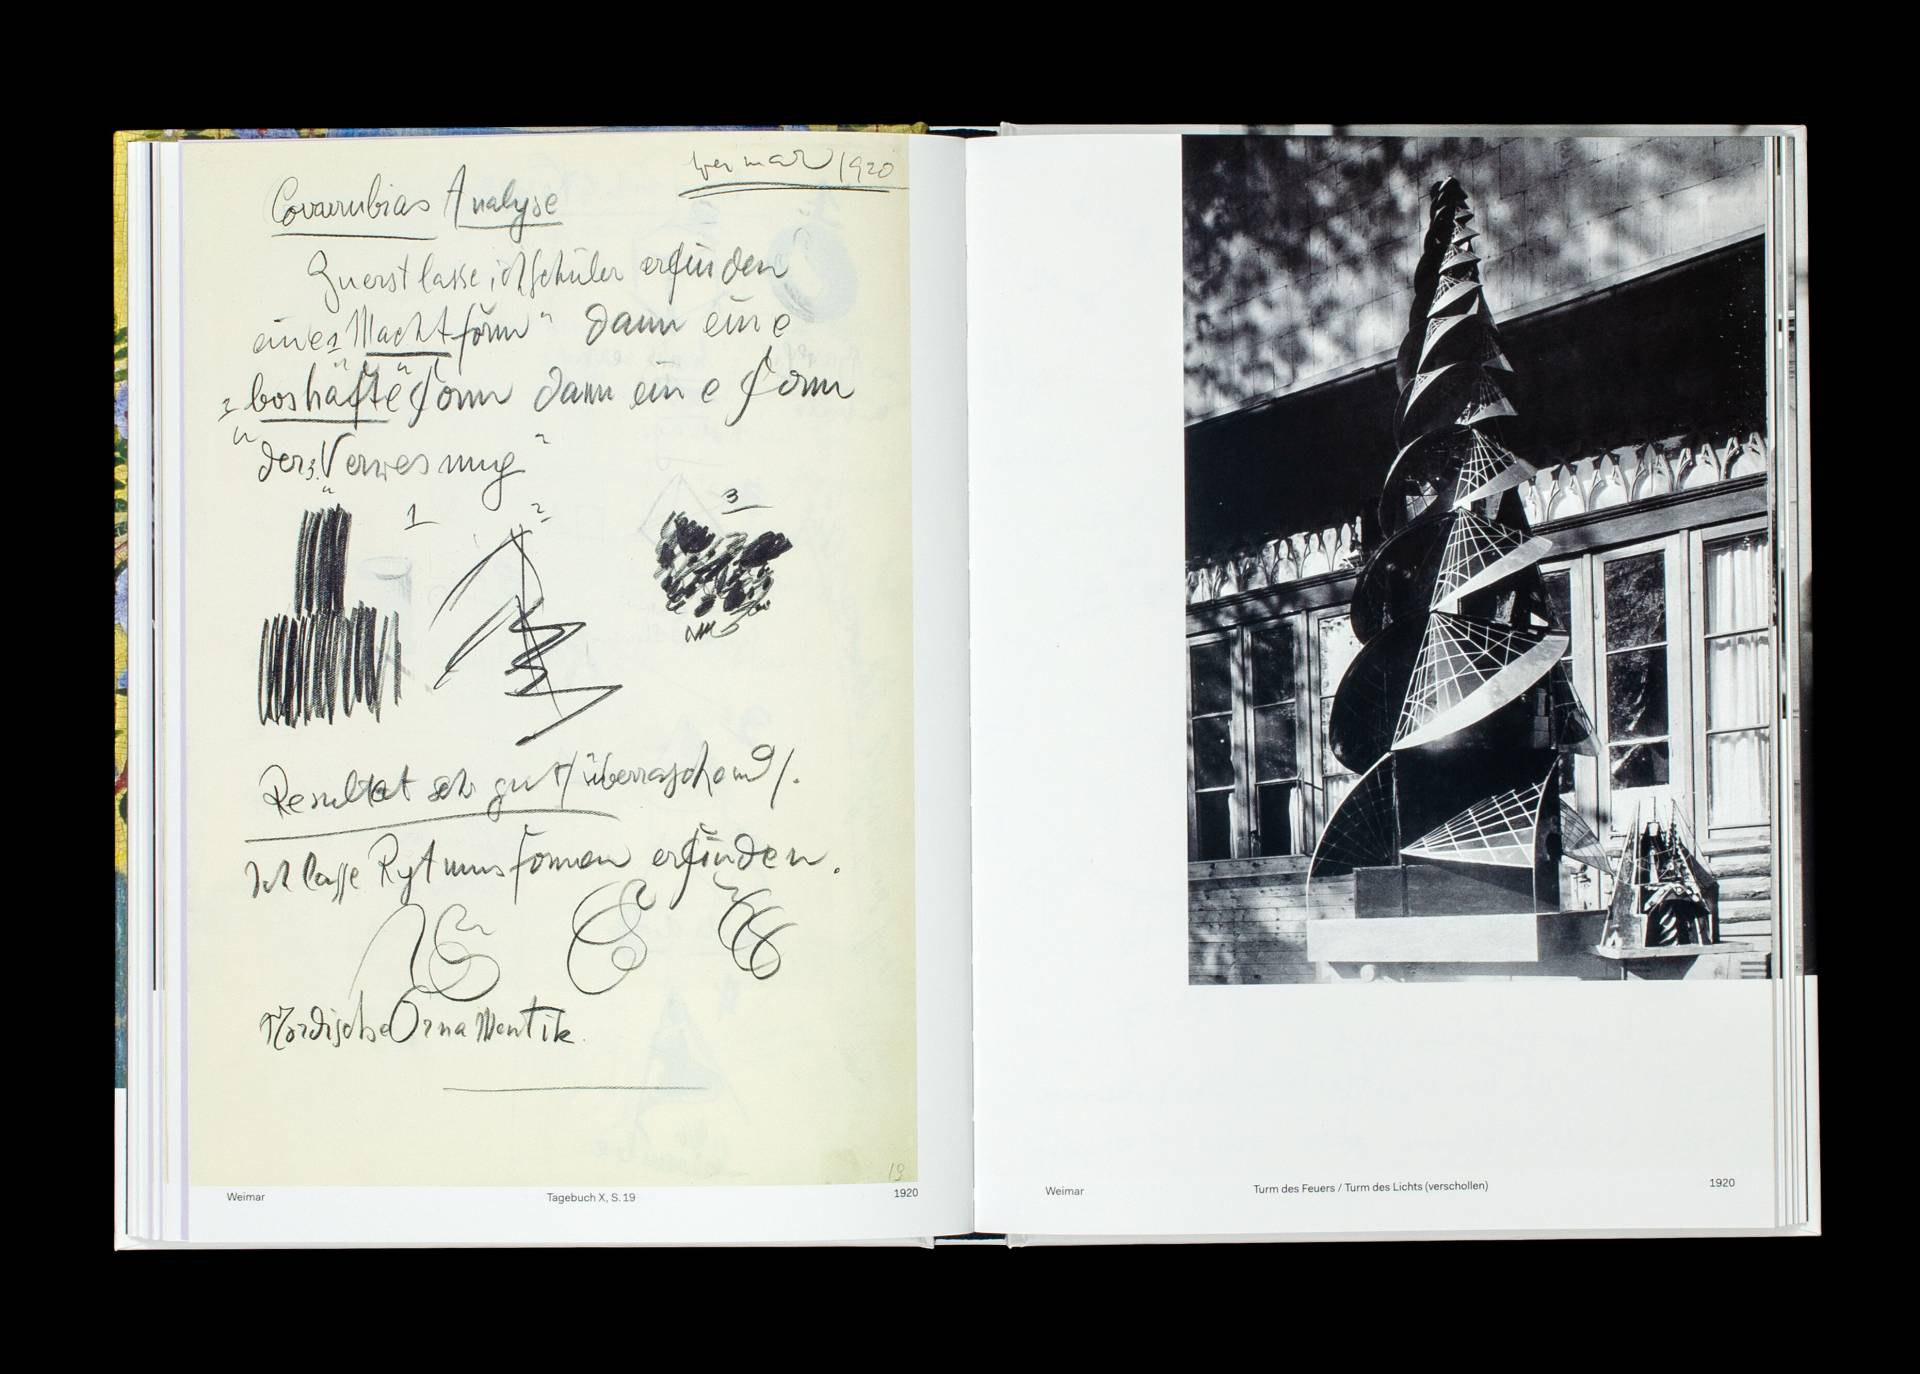 Weimar 1920
Covarrubias Analyse
Zuerst lasse ich Schüler erfinden
eine 1 "Machtform" dann eine
2 "boshafte" Form dann eine Form
"der 3. Verwesung"
1 2 3
Resultat sehr gut / überraschend /.
Ich lasse Rytmusformen erfinden.
Nordische Ornamentik.
19
Weimar Tagebuch X, S. 19 1920
Weimar Turm des Feuers / Turm des Lichts (verschollen) 1920